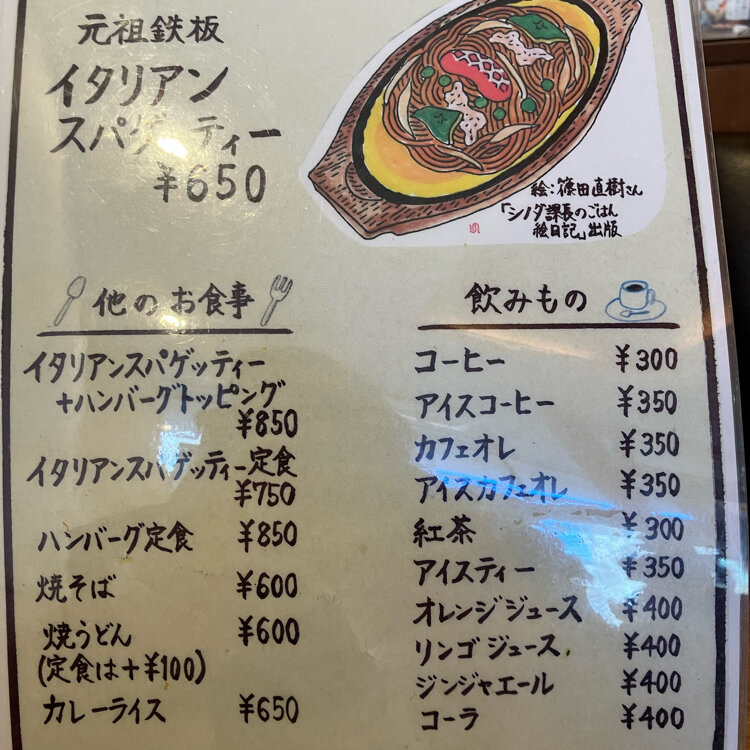 元祖鉄板
イタリアン
スパゲッティー
¥650
絵:篠田直樹さん
「シノダ課長のごはん
絵日記」出版
他のお食事
イタリアンスパゲッティー
+ハンバーグトッピング
¥850
イタリアンスパゲッティー定食
¥750
ハンバーグ定食 ¥850
焼そば ¥600
焼うどん ¥600
(定食は+¥100)
カレーライス ¥650
飲みもの
コーヒー ¥300
アイスコーヒー ¥350
カフェオレ ¥350
アイスカフェオレ ¥350
紅茶 ¥300
アイスティー ¥350
オレンジジュース ¥400
リンゴジュース ¥400
ジンジャエール ¥400
コーラ ¥400